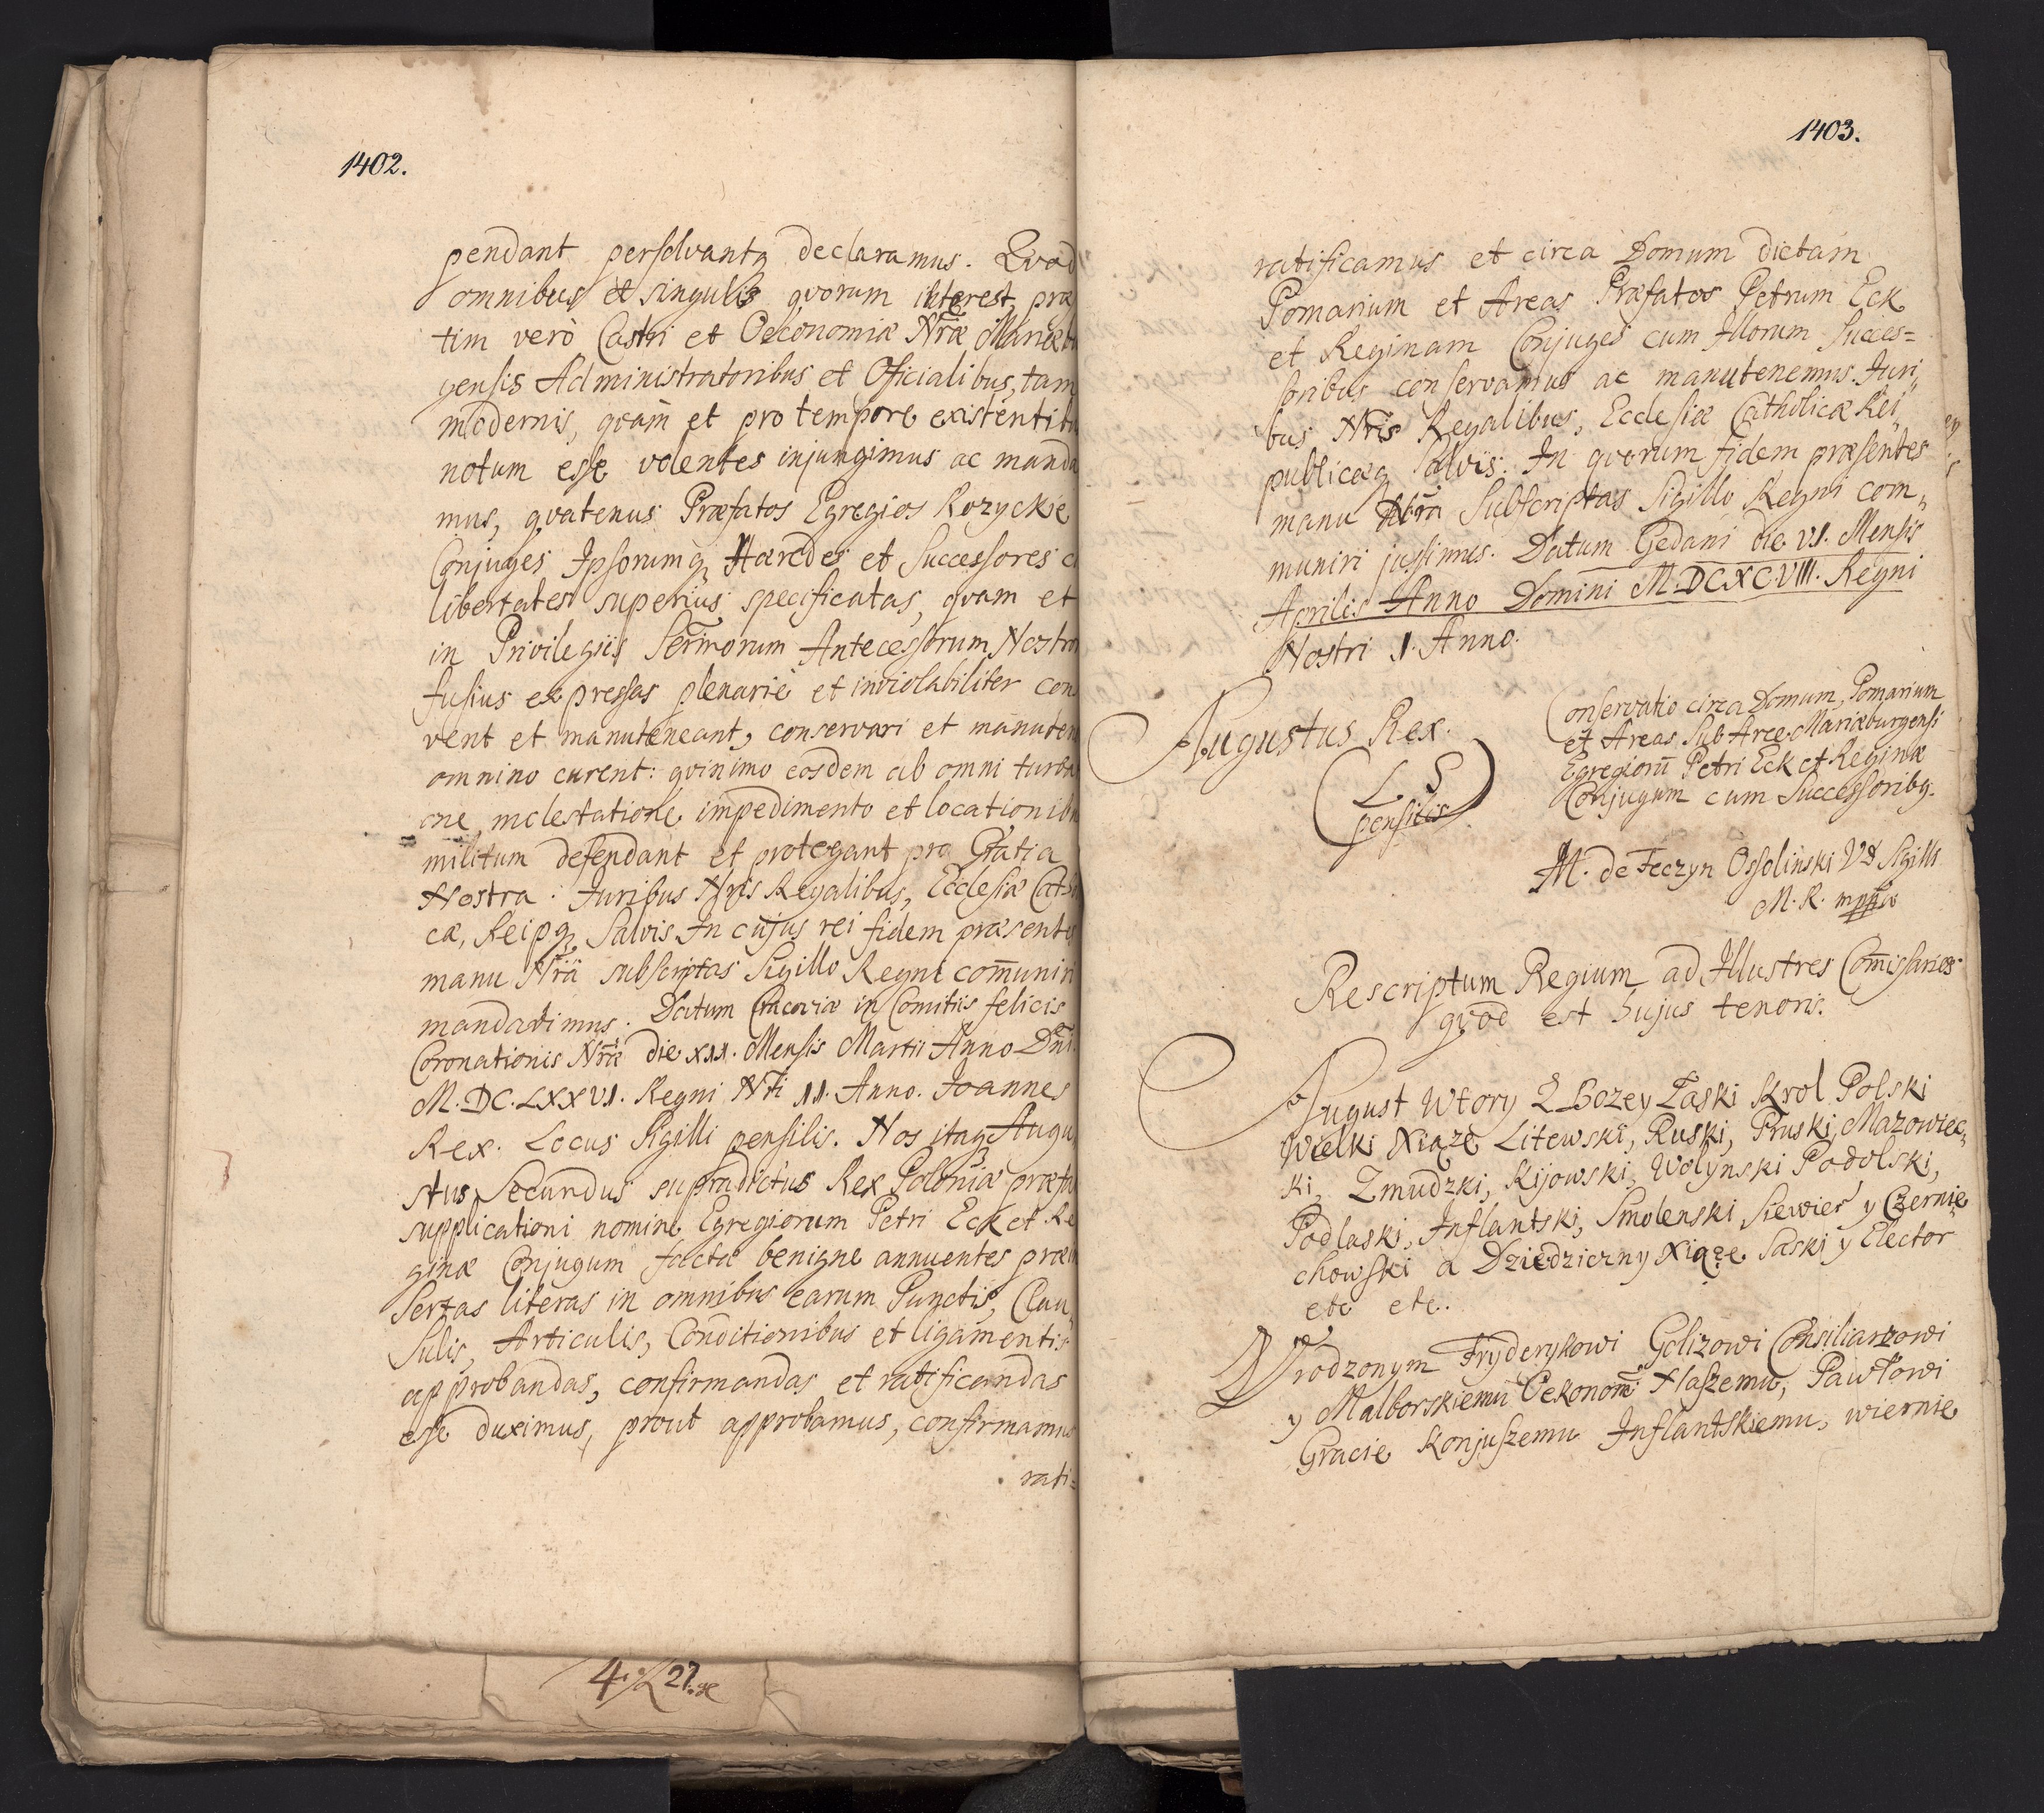 1402.
pendant persolvantq declaramus. Qvod
omnibus et singulis qvorum interest, præ
tim verò Castri et Oeconomiæ Nræ Mariæb
gensis Administratoribus et Officialibus, tam
modernis, qvam et pro tempore existentib
notum esse volentes injungimus ac manda
mus, qvatenus Præfatos Egregios Rozyckie
Conjuges Ipsorumq Hæredes et Successores
libertates superius specificatas, qvam et
in Privilegiis Sermorum Antecessorum Nostro
fusius expressas plenarie et inviolabiliter con
vent et manuteneant, conservari et manuten
omnino curent: qvinimo eosdem ab omni turba
one, molestatione impedimento et locationibu
militum defendant et protegant pro Gratia
Nostra. Juribus Nris Regalibus, Ecclesiæ Cath
cæ, Reipq, Salvis. In cujus rei fidem præsentes
manu Nrä subscriptas Sigillo Regni com̄uniri
mandavimus. Datum Cracoviæ in Comitiis felicis
Coronationis Nræ die XII. Mensis Martii Anno Dni
M.DC.LXXVI. Regni Nri II. Anno. Joannes
Rex. Locus Sigilli pensilis. Nos itaq Augu
stus Secundus supradictus Rex Poloniæ præfa
supplicationi nomine Egregiorum Petri Eck et Re
ginæ Conjugum factæ benigne annuentes præin
sertas literas in omnibus earum Punctis, Clau
sulis, Articulis, Conditionibus et ligamentis
approbandas, confirmandas et ratificandas
esse duximus, prout approbamus, confirmamus
rati=
1403.
ratificamus et circa Domum dictam
Pomarium et Areas Præfatos Petrum Eck
et Reginam Conjuges cum Illorum Succes=
soribus conservamus ac manutenemus. Juri
bus Nris Regalibus, Ecclesiæ Catholicæ Rei
publicæq Salvis. In qvorum fidem præsentes
manu Nrä Subscriptas Sigillo Regni com„
muniri jussimus. Datum Gedani die VI. Mensis
Aprilis Anno Domini M.DCXC.VIII. Regni
Nostri I. Anno.
Augustus Rex.
(L. S.
pensilis)
Conservatio circa Domum, Pomarium
et Areas Sub Arce Mariæburgensi
Egregiorū Petri Eck et Reginæ
Conjugum cum Successoribq.
M. de Teczyn Ossolinski Sigilli
M. R. mppia
Rescriptum Regium ad Illustres Com̄issarios
qvod est hujus tenoris.
August Wtory Z Bozey Łaski Krol Polski
Wielki Xiąze Litewski, Ruski, Pruski, Mazowiec„
ki, Zmudzki, Kijowski, Wołynski Podolski,
Podlaski, Inflantski, Smolenski Siewier y Czernie
chowski a Dziedziczny Xiąze Saski y Elector
etc etc.
Vrodzonym Fryderykowi Golizowi Consiliarzowi
y Malborskiemu Oekonom: Naszemu, Pawłowi
Gracie Konjuszemu Inflantskiemu, wiernie